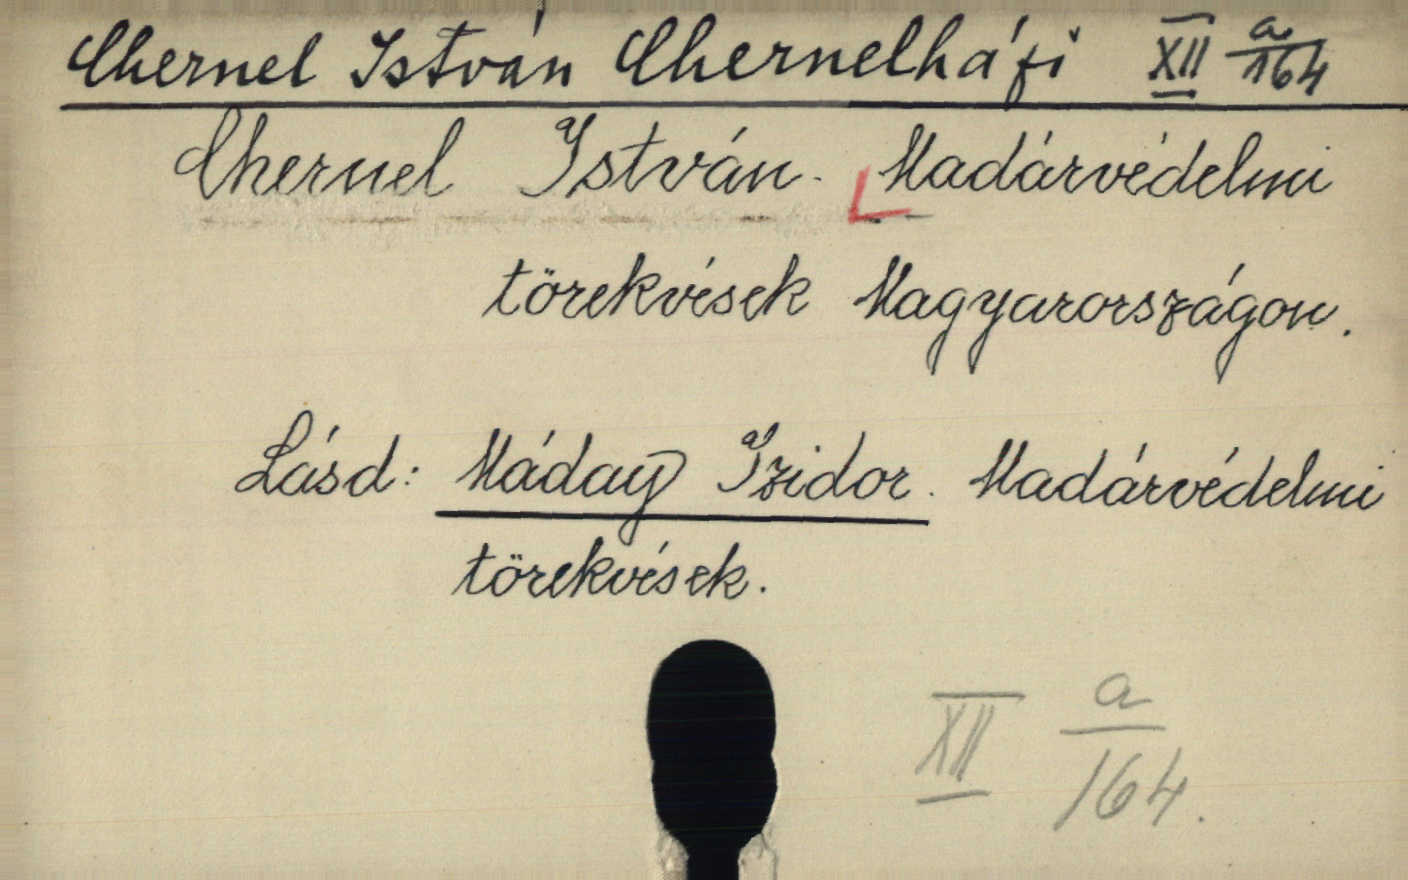 Chernel István Chernelházi XII a/164
Chernel István. Madárvédelmi
törekvések Magyarországon.
Lásd: Máday Izidor. Madárvédelmi
törekvések.
XII a/164.